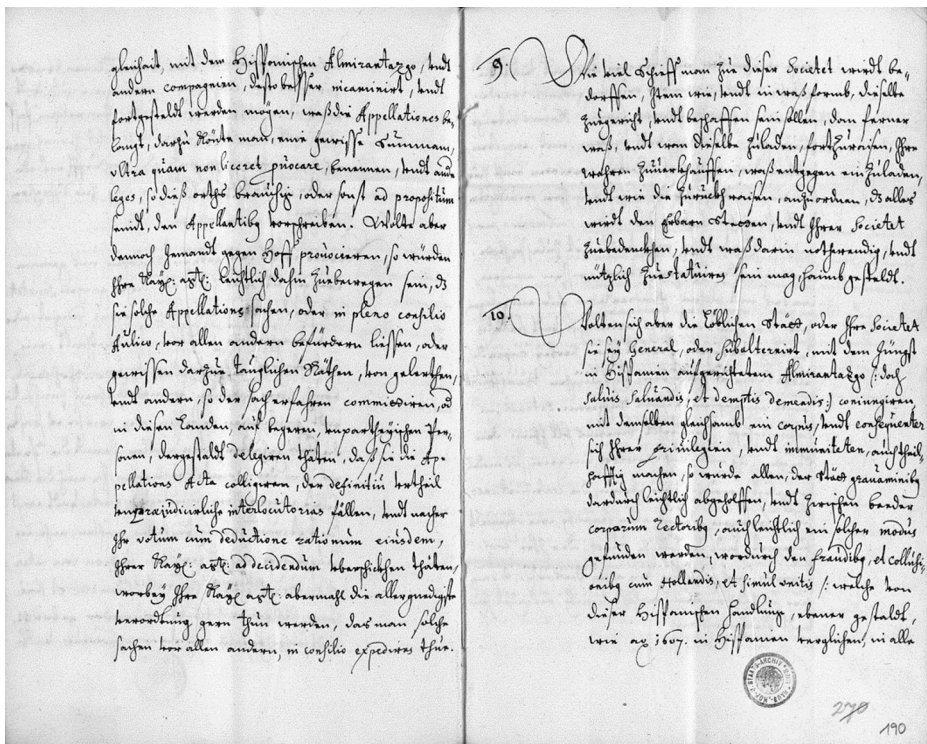 gleichait, mit dem Hispanischen Almirantazgo, vndt
andern compagnien, desto besser, incaminirt, vndt
fortgestelt werden mögen, waß die Appellationes be-
langt, darzu könte man, eine gewisse Summam,
vltra quam non liceret provocare, benennen, vndt andere
leges, so dieß orths breuchig, oder sonst ad propositum
seindt, den Appellantibus vorschreiben. Wolte aber
dennoch Jemandt gegen Hoff provocieren, so würden
Ihre Kayß: Mtt: leichtlich dahin zuebewegen sein, dz
sie solche Appellationssachen, oder in pleno consilio
Aulico, vor allen andern befürdern liessen, oder
gewissen darzue tauglichen Räthen, von gelerthen,
vndt andern, so der sach erfahren committiren, od
in diesen Landen, auß bequemen, impartheyischen Per-
sonen, dergestaldt delegiren thäten, daß sie die Ap-
pellations Acta colligiren, der definitiv vrtheil
praejudicirliche interlocutorias fällen, vndt nacher
ihr votum cum deductione rationum eiusdem,
Ihrer Kayß: Mtt: ad decidendum vberschickhen thäten,
worbey Ihre Kayß: Mtt: abermahl die allergnedigste
verordtnung gern thun werden, das man solche
sachen vor allen andern, in consilio expediren thue.
9. Wie viel Schiff man zue dieser Societet wirdt be-
dorffen, Item wie, vndt in waß formb, dieselbe
zuegericht, vndt beschaffen sein sollen, dan ferner
waß, vndt wen dieselbe zuladen, fortzuraisen, Ihre
wahren zuuerkhauffen, waß entgegen einzuladen,
vndt wie die zuruckh raisen, anzuordnen, dz alles
wirdt den Erbarn Stetten, vndt Ihrer Societet
zubedenckhen, vndt waß darin nothwendig, vndt
nützlich zuestatuiren sein mag, haimb gestelt.
10. Wolten sich aber die löblichen Stätt, oder Ihre Societet
sie sey General, oder subalternirt, mit dem Jüngst
in Hispanien aufgerichtetem Almirantazgo /: doch
saluis saluandis, et demptis demendis :/ coniungiren
mit demselben gleichsamb ein corpus, vndt consequenter
sich Ihrer priuilegien, vndt immuniteten, auch theil-
hafftig machen, so würde allen, der Stätt grauaminibus
dardurch leichtlich abgeholffen, vndt zwischen beeder
corporum rectoribus, auch leichtlich ein solcher modus
gefunden werden, wordurch den fraudibus, et collusi-
onibus cum Hollandis, et simul vnitis /: welche von
dieser Hispanischen Handlung, ebener gestaldt,
wie ao 1607. in Hispanien verglichen, in alle
270
190